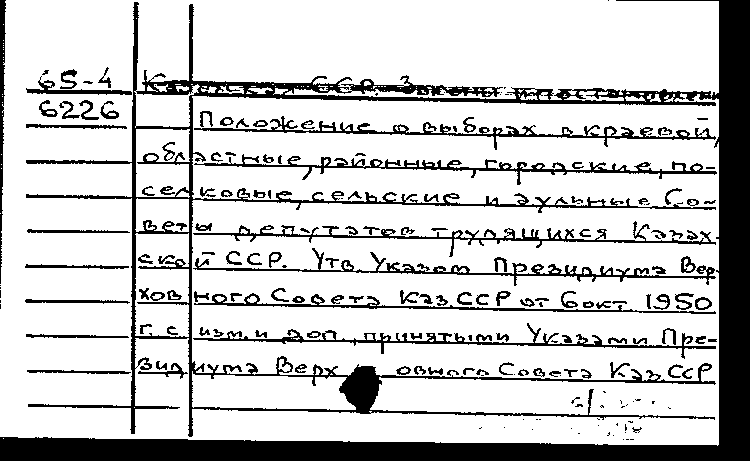 65-4 Казахская ССР. Законы и постановлени
6226
Положение о выборах в краевой,
областные, районные, городские, по-
селковые, сельские и аульные Со-
веты депутатов трудящихся Казах-
ской ССР. Утв. Указом Президиума Вер-
ховного Совета Каз.ССР от 6 окт. 1950
г. с изм. и доп., принятыми Указами Пре-
зидиума Верховного Совета Каз.ССР